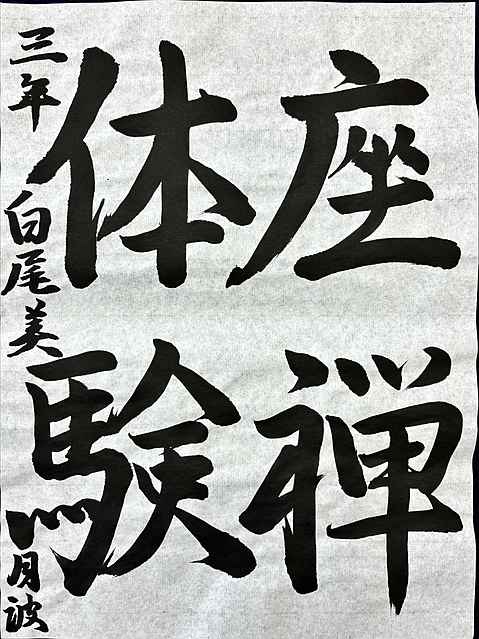 座禅
体験
三年 白尾美月波